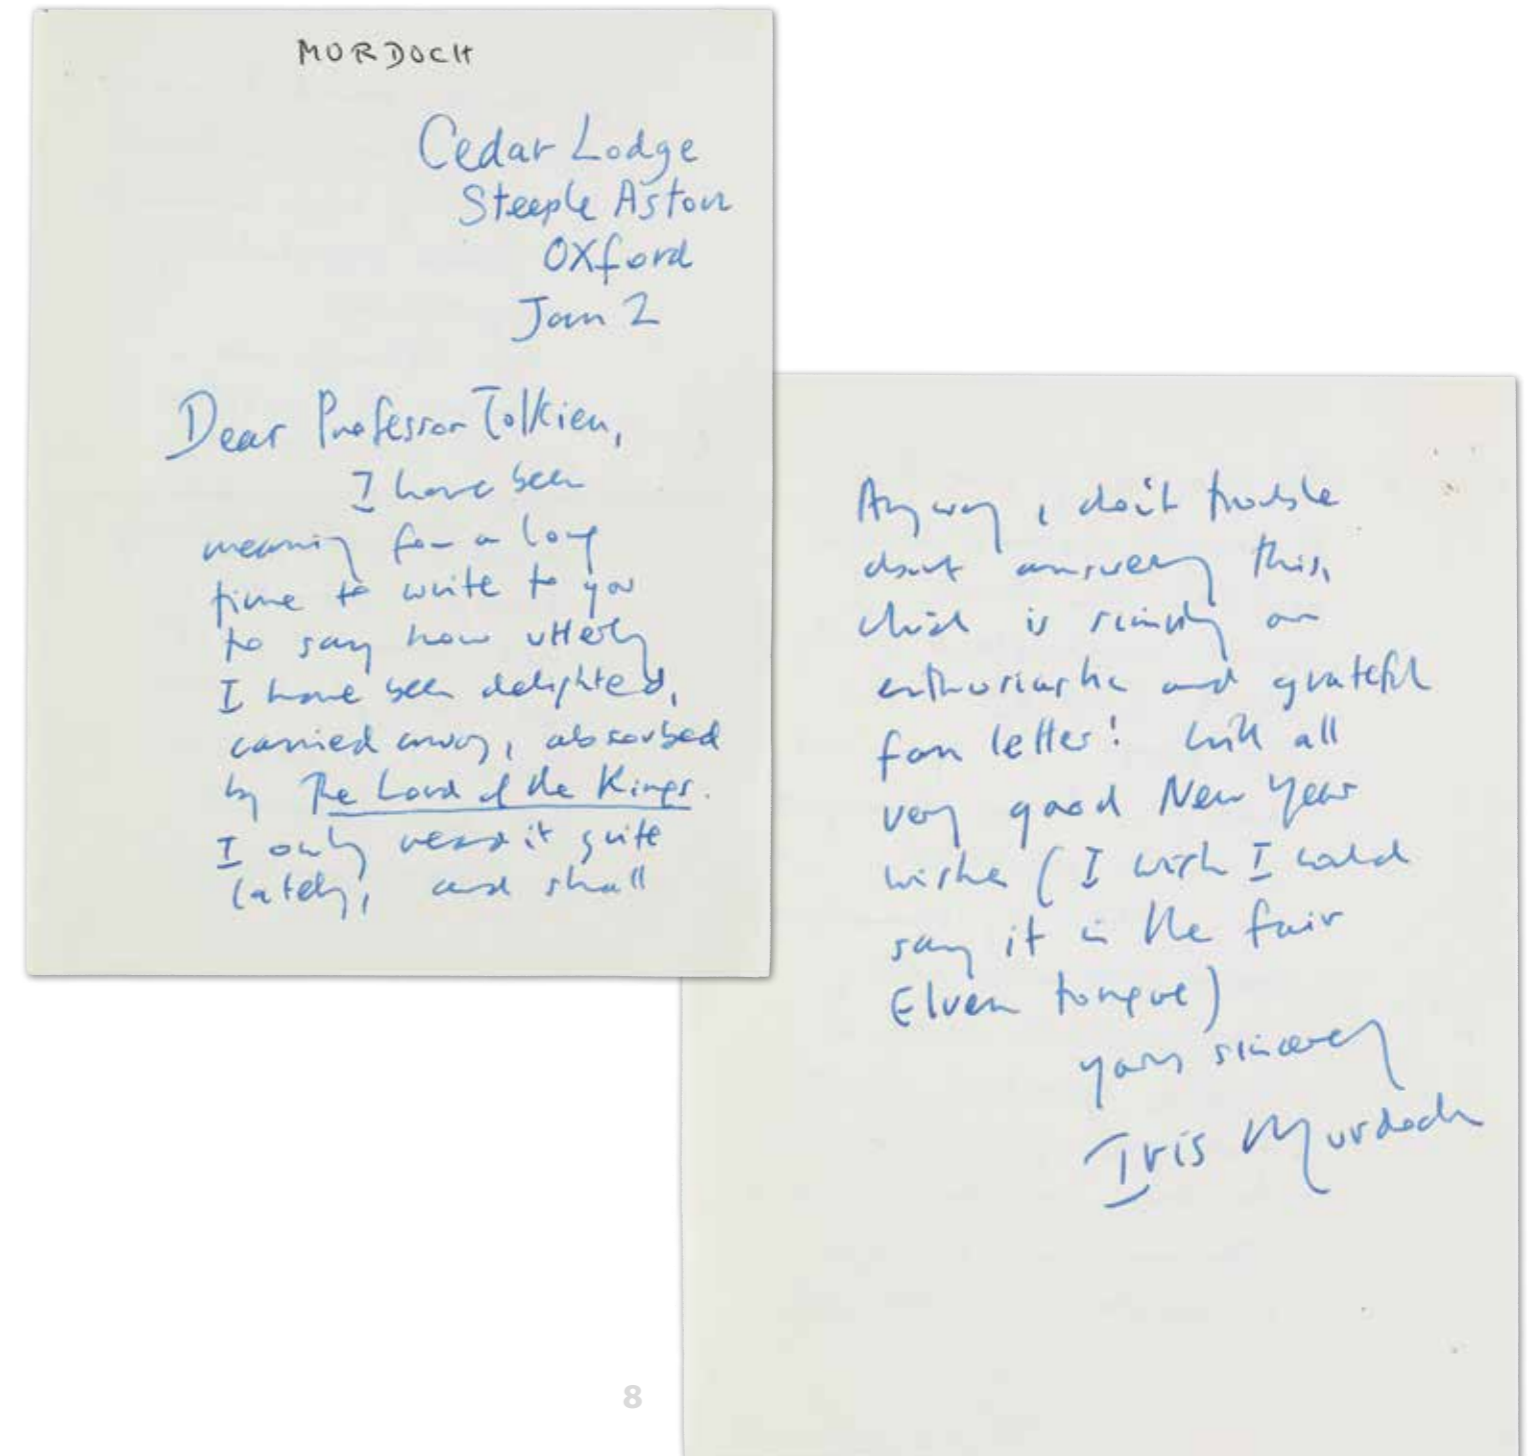 MURDOCH
Cedar Lodge
Steeple Aston
Oxford
Jan 2
Dear Professor Tolkien,
I have been
meaning for a long
time to write to you
to say how utterly
I have been delighted,
carried away, absorbed
by The Lord of the Rings.
I only read it quite
lately, and shall
Anyway, don't trouble
about answering this,
which is simply an
enthusiastic and grateful
fan letter! With all
very good New Year
wishes (I wish I could
say it in the fair
Elven tongue)
yours sincerely
Iris Murdoch
8